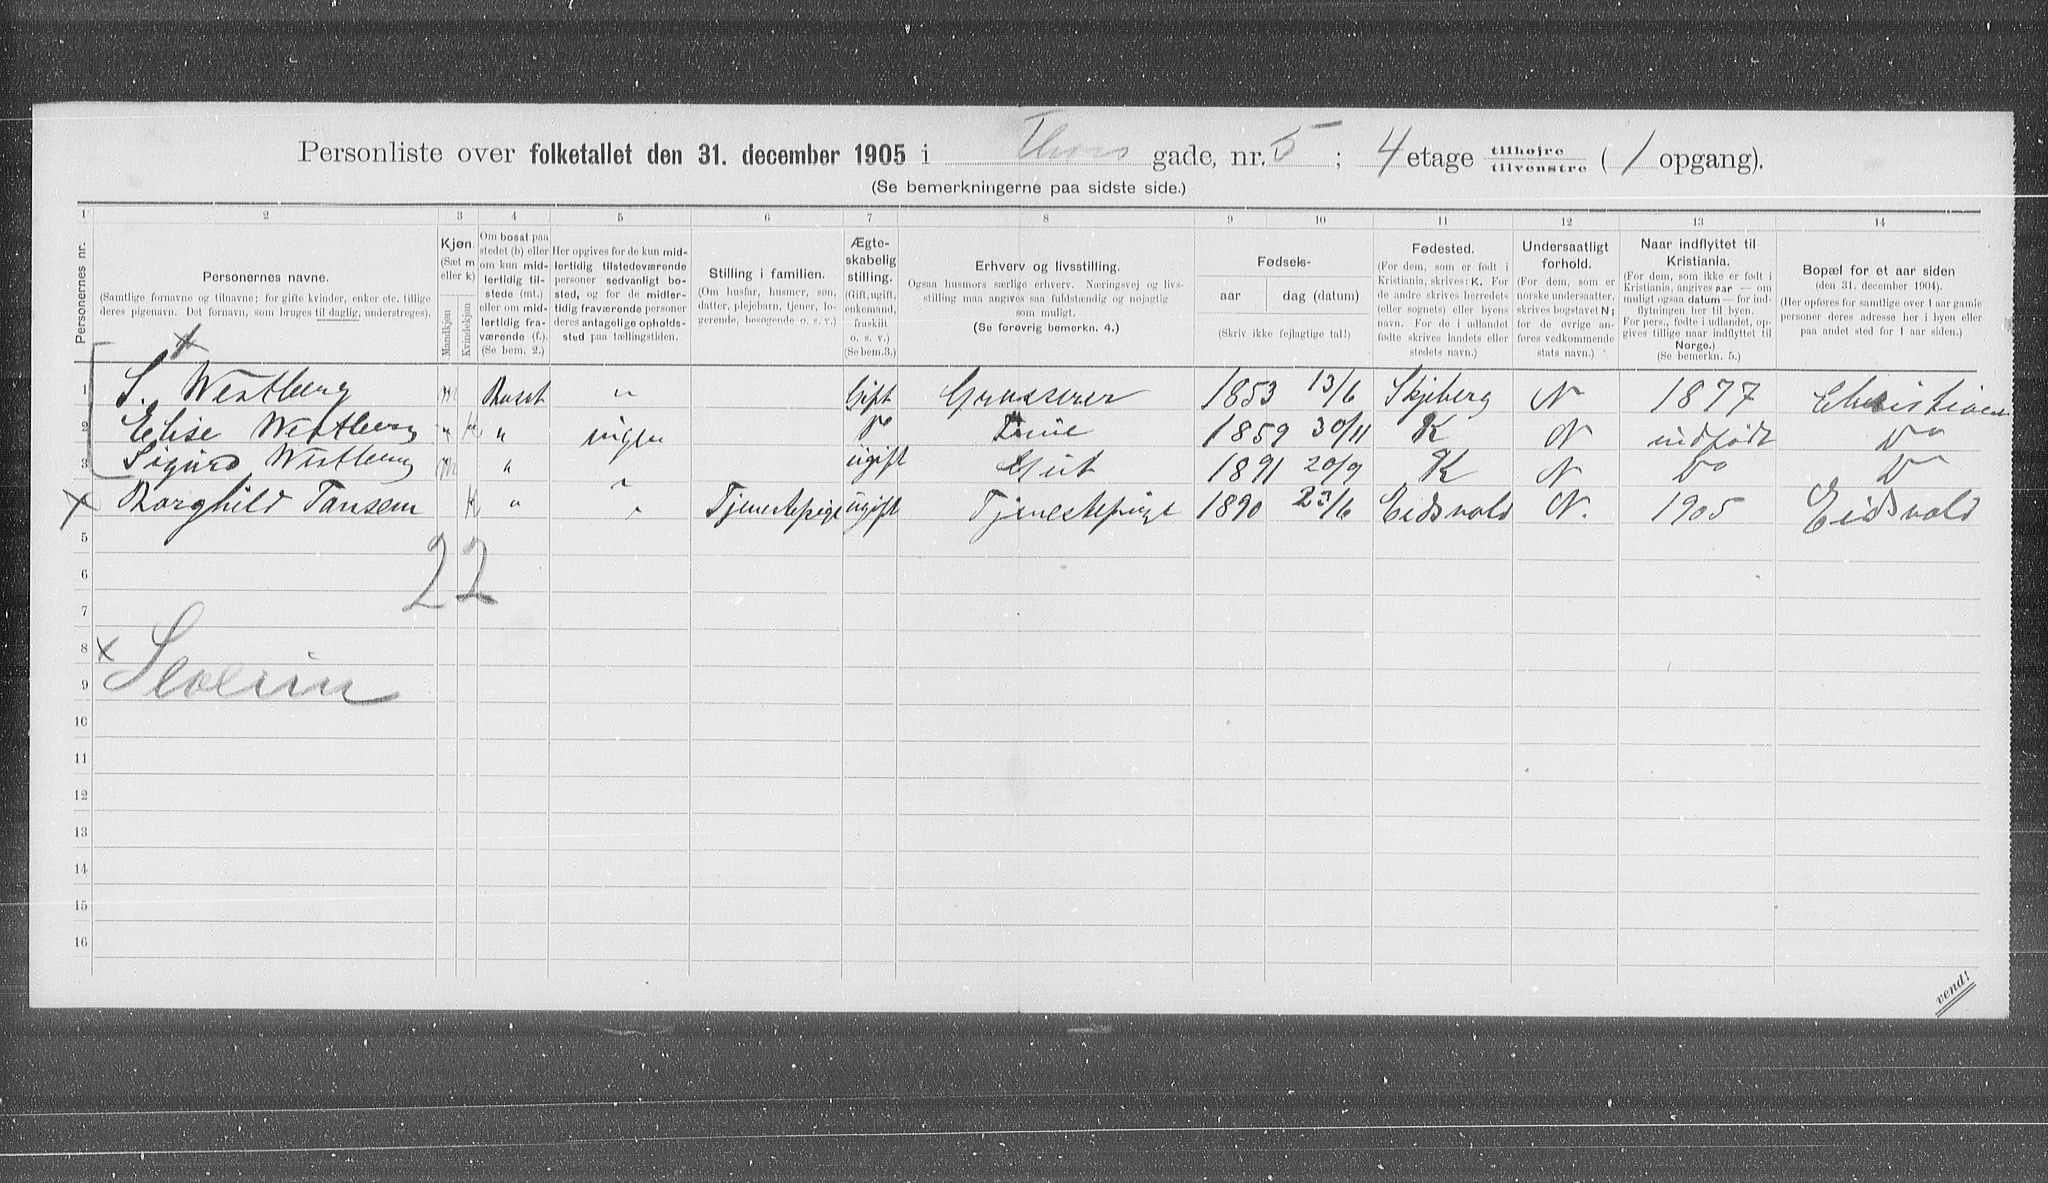 Personliste over folketallet den 31. december 1905 i Thors gade, nr. 5 ; 4 etage tilhøjre tilvenstre ( 1 opgang).
(Se bemerkningerne paa sidste side.)
1 2 3 4 5 6 7 8 9 10 11 12 13 14
Personernes nr.
Personernes navne.
(Samtlige fornavne og tilnavne; for gifte kvinder, enker etc. tillige deres pigenavn. Det fornavn, som bruges til daglig, understreges).
Kjøn.
(Sæt m eller k)
Mandkjøn
Kvindekjøn
Om bosat paa stedet (b) eller om kun midlertidig tilstede (mt.) eller om midlertidig fraværende (f.). (Se bem. 2.)
Her opgives for de kun midlertidig tilstedeværende personer sedvanligt bosted, og for de midlertidig fraværende personer deres antagelige opholdssted paa tællingstiden.
Stilling i familien.
(Om husfar, husmor, søn, datter, plejebarn, tjener, logerende, besøgende o. s. v.)
Ægteskabelig stilling.
(Gift, ugift, enkemand, fraskilt o. s. v.)
(Se bem. 3.)
Erhverv og livsstilling.
Ogsaa husmors særlige erhverv. Næringsvej og livsstilling maa angives saa fuldstændig og nøjagtig som muligt.
(Se forøvrig bemerkn. 4.)
Fødsels-
aar
dag (datum)
(Skriv ikke fejlagtige tal!)
Fødested.
(For dem, som er født i Kristiania, skrives: K. For de andre skrives herredets (eller sognets) eller byens navn. For de i udlandet fødte skrives landets eller stedets navn.)
Undersaatligt forhold.
(For dem, som er norske undersaatter, skrives bogstavet N; for de øvrige anføres vedkommende stats navn.)
Naar indflyttet til Kristiania.
(For dem, som ikke er født i Kristiania, angives aar — om muligt ogsaa datum — for indflytningen her til byen. For pers., fødte i udlandet, opgives tillige naar indflyttet til Norge.)
(Se bemerkn. 5.)
Bopæl for et aar siden
(den 31. december 1904).
(Her opføres for samtlige over 1 aar gamle personer deres adresse her i byen eller paa andet sted for 1 aar siden.)
1 S. Westberg m Bosat " Gift Grosserer 1853 13/6 Skjeberg N 1877
2 Elise Westberg " k " ingen Do 1859 30/11 K N indfødt Do
3 Sigurd Westberg m " ugift 1891 20/9 K N Do Do
Borghild Jansem k " " Tjenestepige ugift Tjenestepige 1890 23/6 Eidsvold N. 1905 Eidsvold
5
22
6
7
8
x Severin
9
10
11
12
13
14
15
16
vend!